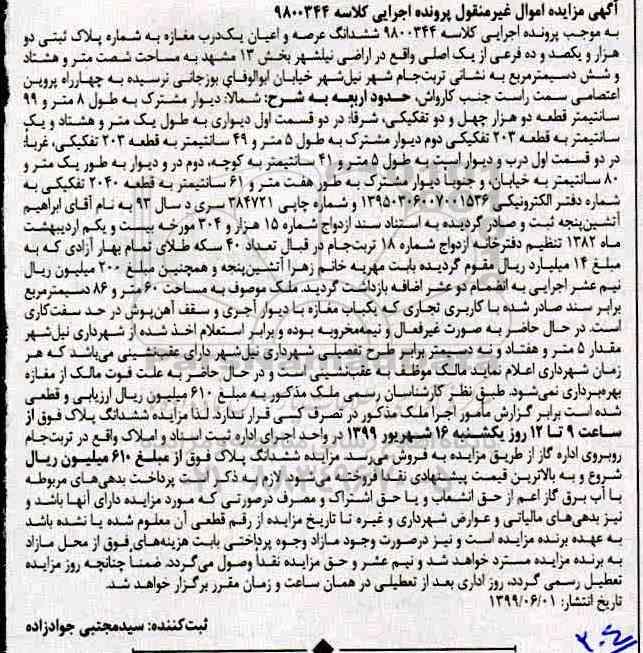 آگهی مزایده اموال غیرمنقول پرونده اجرایی کلاسه ۹۸۰۰۳۴۴
به موجب پرونده اجرایی کلاسه ۹۸۰۰۳۴۴ ششدانگ عرصه و اعیان یک‌درب مغازه به شماره پلاک ثبتی دو
هزار و یکصد و ده فرعی از یک اصلی واقع در اراضی نیلشهر بخش ۱۳ مشهد به مساحت شصت متر و هشتاد
و شش دسیمترمربع به نشانی تربت‌جام شهر نیل‌شهر خیابان ابوالوفای بوزجانی نرسیده به چهارراه پروین
اعتصامی سمت راست جنب کارواش، حدود اربعه به شرح: شمالا: دیوار مشترک به طول ۸ متر و ۹۹
سانتیمتر قطعه دو هزار چهل و دو تفکیکی، شرقا: در دو قسمت اول دیواری به طول یک متر و هشتاد و یک
سانتیمتر به قطعه ۲۰۳ تفکیکی دوم دیوار مشترک به طول ۵ متر و ۴۹ سانتیمتر به قطعه ۲۰۳ تفکیکی، غربا:
در دو قسمت اول درب و دیوار است به طول ۵ متر و ۴۱ سانتیمتر به کوچه، دوم در و دیوار به طور یک متر و
۸۰ سانتیمتر به خیابان، و جنوبا دیوار مشترک به طور هفت متر و ۶۱ سانتیمتر به قطعه ۲۰۴۰ تفکیکی به
شماره دفتر الکترونیکی ۱۳۹۵۰۳۰۶۰۰۷۰۰۱۵۳۶ و شماره چاپی ۳۸۴۷۲۱ سری د سال ۹۳ به نام آقای ابراهیم
آتشین‌پنجه ثبت و صادر گردیده به استناد سند ازدواج شماره ۱۵ هزار و ۳۰۴ مورخه بیست و یکم اردیبهشت
ماه ۱۳۸۲ تنظیم دفترخانه ازدواج شماره ۱۸ تربت‌جام در قبال تعداد ۴۰ سکه طلای تمام بهار آزادی که به
مبلغ ۱۴ میلیارد ریال مقوم گردیده بابت مهریه خانم زهرا آتشین‌پنجه و همچنین مبلغ ۲۰۰ میلیون ریال
نیم عشر اجرایی به انضمام دو عشر اضافه بازداشت گردید. ملک موصوف به مساحت ۶۰ متر و ۸۶ دسیمترمربع
برابر سند صادر شده با کاربری تجاری که یکباب مغازه با دیوار آجری و سقف آهن‌پوش در حد سفت‌کاری
است. در حال حاضر به صورت غیرفعال و نیمه‌مخروبه بوده و برابر استعلام اخذ شده از شهرداری نیل‌شهر
مقدار ۵ متر و هفتاد و نه دسیمتر برابر طرح تفصیلی شهرداری نیل‌شهر دارای عقب‌نشینی می‌باشد که هر
زمان شهرداری اعلام نماید مالک موظف به عقب‌نشینی است و در حال حاضر به علت فوت مالک از مغازه
بهره‌برداری نمی‌شود. طبق نظر کارشناسان رسمی ملک مذکور به مبلغ ۶۱۰ میلیون ریال ارزیابی و قطعی
شده است برابر گزارش مأمور اجرا ملک مذکور در تصرف کسی قرار ندارد. لذا مزایده ششدانگ پلاک فوق از
ساعت ۹ تا ۱۲ روز یکشنبه ۱۶ شهریور ۱۳۹۹ در واحد اجرای اداره ثبت اسناد و املاک واقع در تربت‌جام
روبروی اداره گاز از طریق مزایده به فروش می‌رسد. مزایده ششدانگ پلاک فوق از مبلغ ۶۱۰ میلیون ریال
شروع و به بالاترین قیمت پیشنهادی نقدا فروخته می‌شود. لازم به ذکر است پرداخت بدهی‌های مربوطه
با آب برق گاز اعم از حق انشعاب و یا حق اشتراک و مصرف درصورتی که مورد مزایده دارای آنها باشد و
نیز بدهی‌های مالیاتی و عوارض شهرداری و غیره تا تاریخ مزایده از رقم قطعی آن معلوم شده یا نشده باشد
به عهده برنده مزایده است و نیز درصورت وجود مازاد وجوه پرداختی بابت هزینه‌های فوق از محل مازاد
به برنده مزایده مسترد خواهد شد و نیم عشر و حق مزایده نقداً وصول می‌گردد. ضمنا چنانچه روز مزایده
تعطیل رسمی گردد، روز اداری بعد از تعطیلی در همان ساعت و زمان مقرر برگزار خواهد شد.
تاریخ انتشار: ۱۳۹۹/۰۶/۰۱
ثبت‌کننده: سیدمجتبی جوادزاده